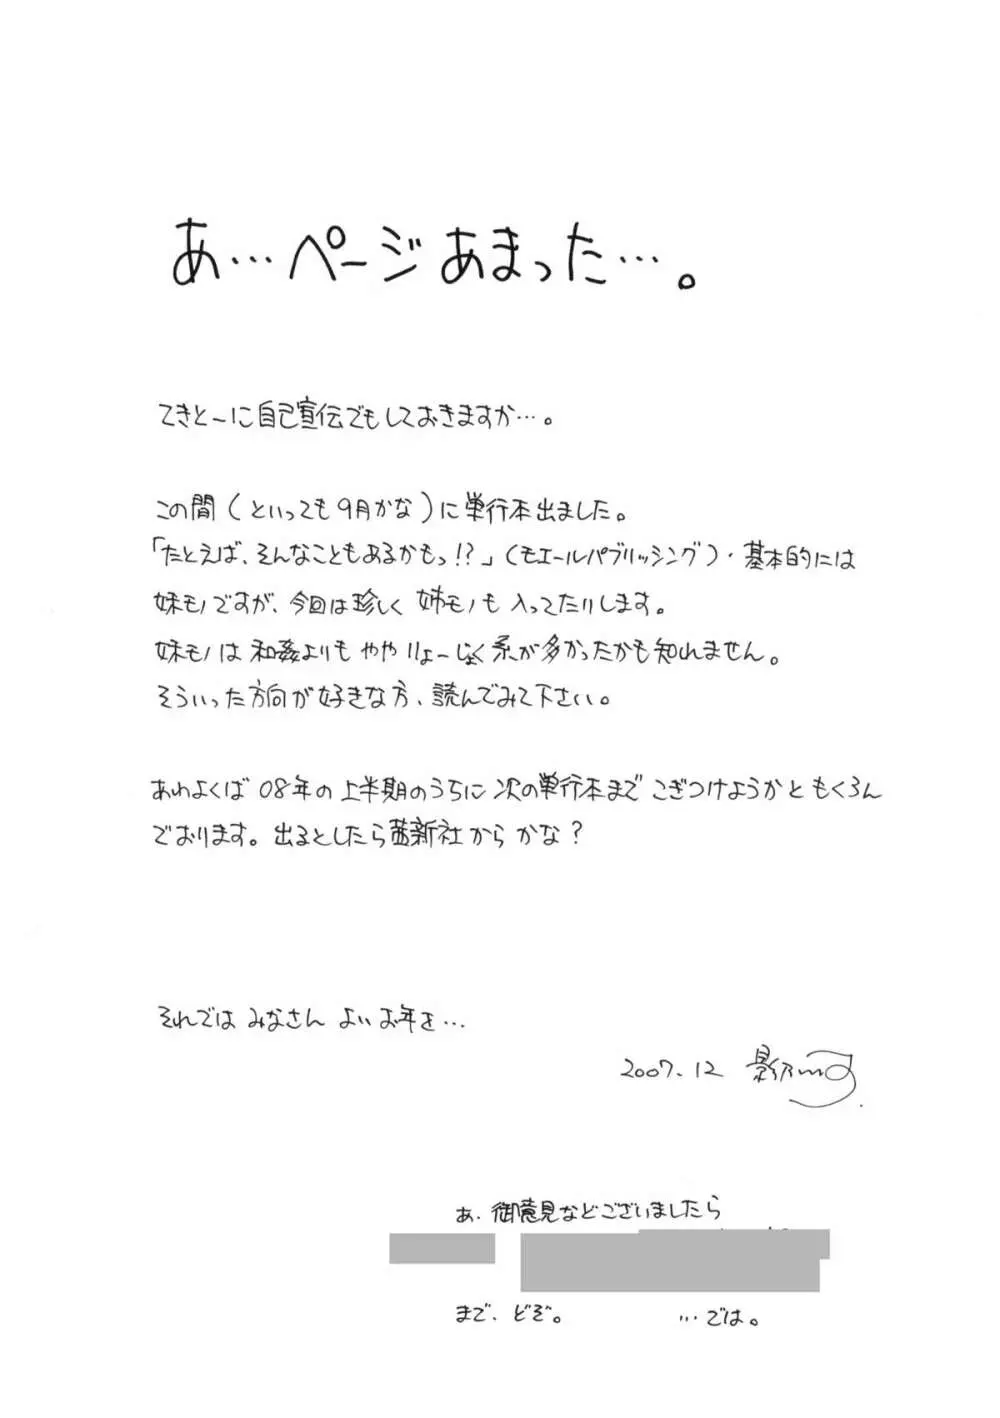 あ…ページあまった…。
てきとーに自己宣伝でもしておきますか…。
この間(といっても9月かな)に単行本出ました。
「たとえば、そんなこともあるかもっ!?」(モエールパブリッシング)・基本的には
妹モノですが、今回は珍しく姉モノも入ってたりします。
妹モノは和姦よりもややりょーじょく系が多かったかも知れません。
そういった方向が好きな方、読んでみて下さい。
あわよくば08年の上半期のうちに次の単行本までこぎつけようかともくろん
でおります。出るとしたら茜新社からかな?
それではみなさんよいお年を…
2007.12 影乃
あ、御意見などございましたら
まで、どぞ。 …では。